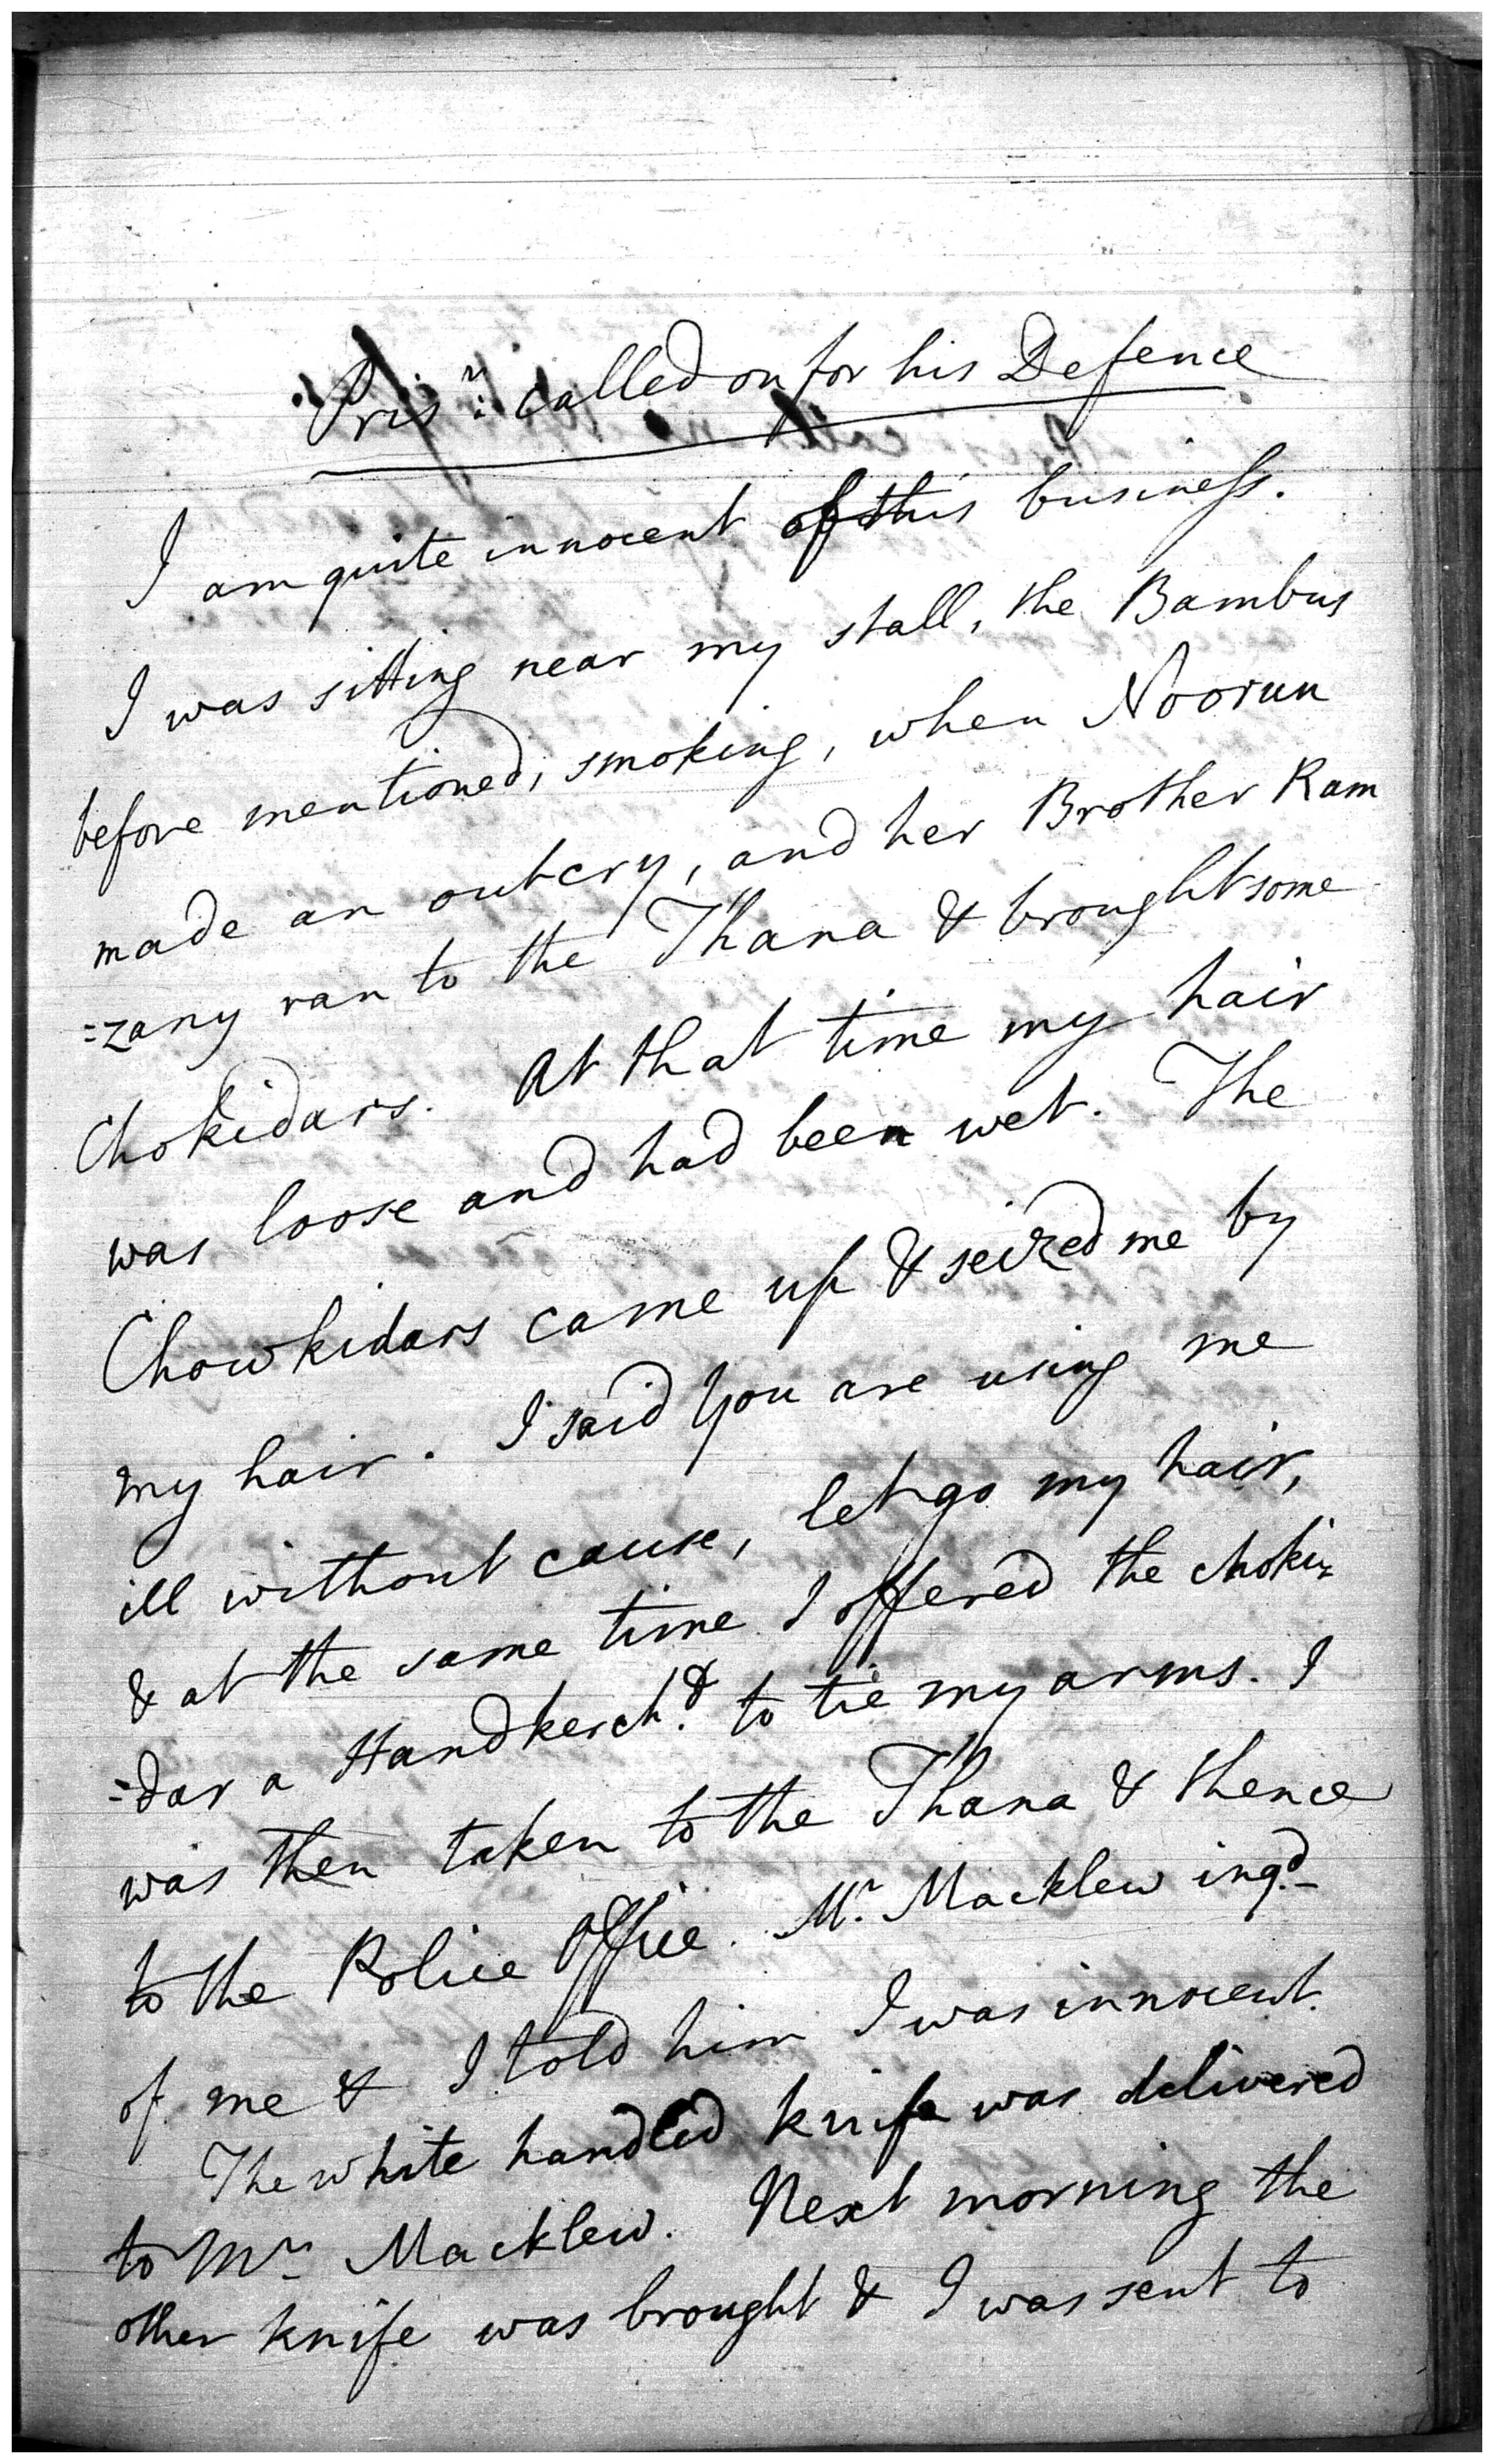 Pris.r called on for his Defence
I am quite innocent of this business.
I was sitting near my stall, the Bambus
before mentioned, smoking, when Noorun
made an outcry, and her Brother Ram
=zany ran to the Thana & brought some
Chokidars. At that time my hair
was loose and had been wet. The
Chowkidars came up & seized me by
my hair. I said you are using me
ill without cause, let go my hair,
& at the same time I offered the choki=
=dar a Handkerch.f to tie my arms. I
was then taken to the Thana & thence
to the Police Office. Mr. Macklew inq.d
of me & I told him I was innocent.
The white handled knife was delivered
to Mr. Macklew. Next morning the
other knife was brought & I was sent to